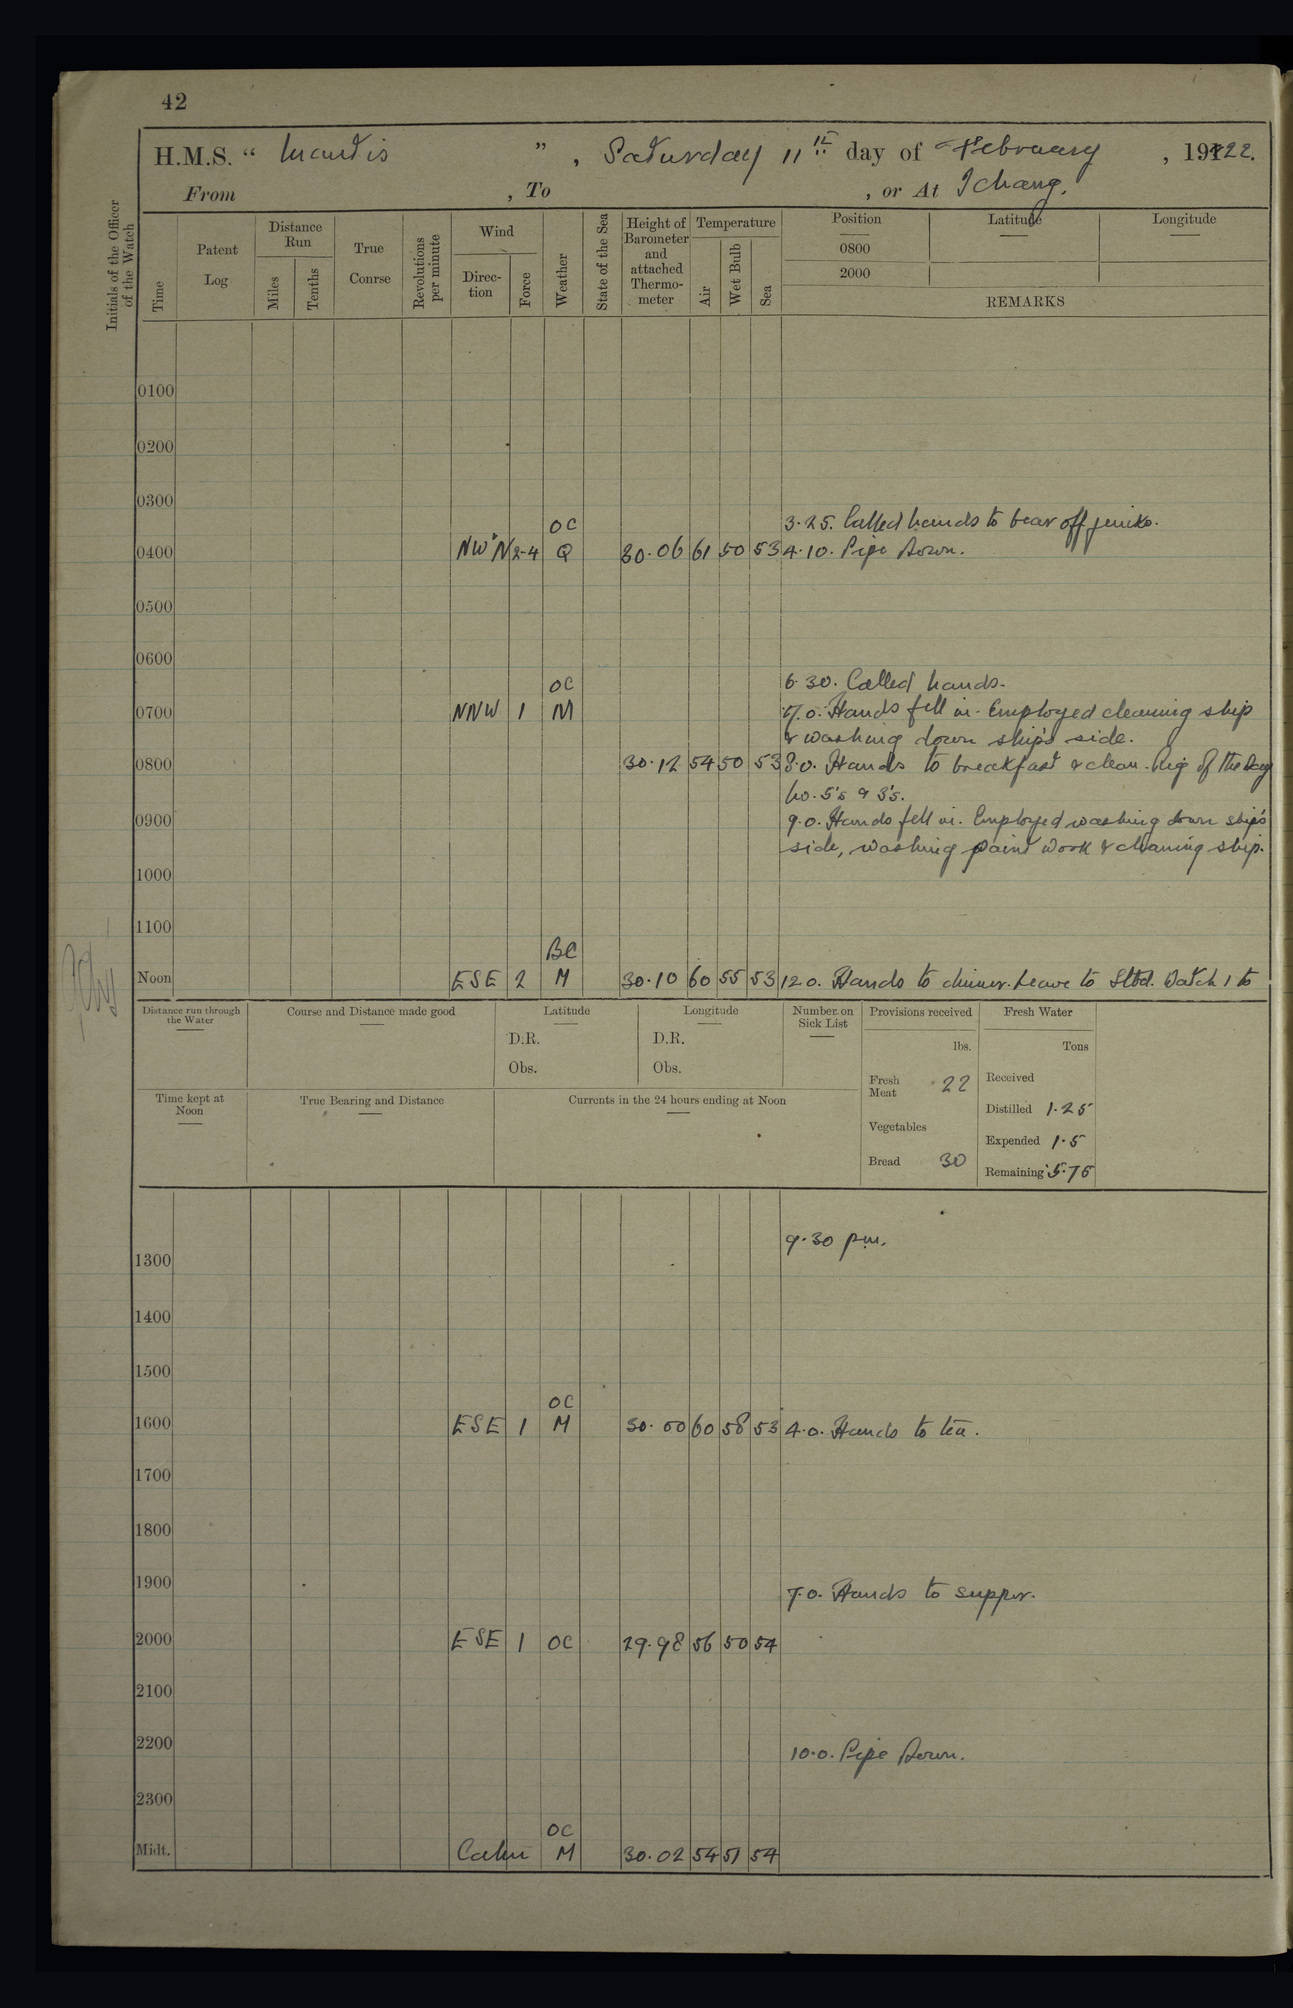 42
H.M.S. “ Mantis ” , Saturday 11th day of February , 1922.
From , To , or At Ichang.
Initials of the Officer of the Watch
Time
Patent Log
Distance Run
Miles
Tenths
True Course
Revolutions per minute
Wind
Direc-tion
Force
Weather
State of the Sea
Height of Barometer and attached Thermo-meter
Temperature
Air
Wet Bulb
Sea
Position
Latitude
Longitude
0800
2000
REMARKS
0100
0200
0300
OC 3.25. Called hands to bear off junks.
0400 NW'N 2-4 Q 30.06 61 50 53 4.10. Pipe Down.
0500
0600
OC 6.30. Called hands.
0700 NNW 1 M 7.0. Hands fell in. Employed cleaning ship
& washing down ship's side.
0800 30.12 54 50 53 8.0. Hands to breakfast & clean. Rig of the Day
No. 5's & 3's.
0900 9.0. Hands fell in. Employed washing down ship's
side, washing paint work & cleaning ship.
1000
1100
BC
Noon ESE 2 M 30.10 60 55 53 12.0. Hands to dinner. Leave to Stbd. Watch 1 to
Distance run through the Water
Course and Distance made good
Latitude
D.R.
Obs.
Longitude
D.R.
Obs.
Number on Sick List
Provisions received
lbs.
Fresh Meat 22
Vegetables
Bread 30
Fresh Water
Tons
Received
Distilled 1.25
Expended 1.5
Remaining 5.75
Time kept at Noon
True Bearing and Distance
Currents in the 24 hours ending at Noon
9.30 pm.
1300
1400
1500
OC
1600 ESE 1 M 30.00 60 58 53 4.0. Hands to tea.
1700
1800
1900 7.0. Hands to supper.
2000 ESE 1 OC 29.98 56 50 54
2100
2200 10.0. Pipe Down.
2300
OC
Midt. Calm M 30.02 54 51 54